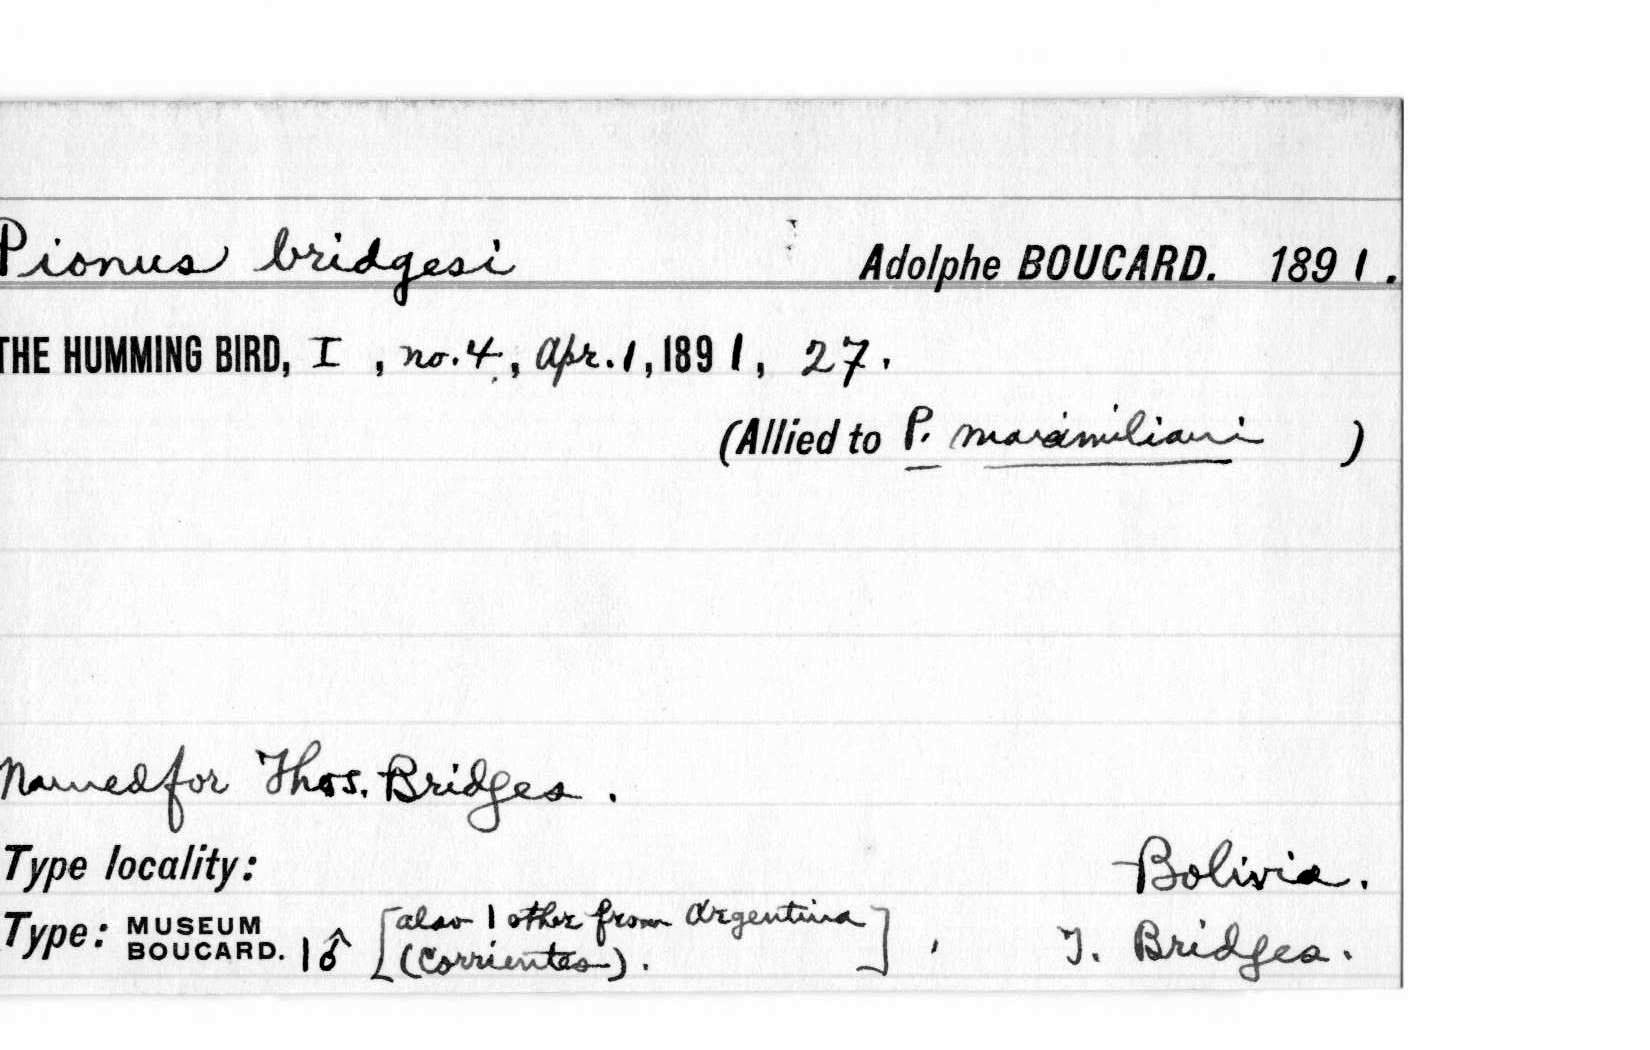 Pionus bridgesi Adolphe BOUCARD. 1891.
THE HUMMING BIRD, I, no. 4, Apr. 1, 1891, 27.
(Allied to P. maximiliani )
Named for Thos. Bridges.
Type locality: Bolivia.
Type: MUSEUM BOUCARD. 1 ♂ [also 1 other from Argentina (Corrientes).], T. Bridges.